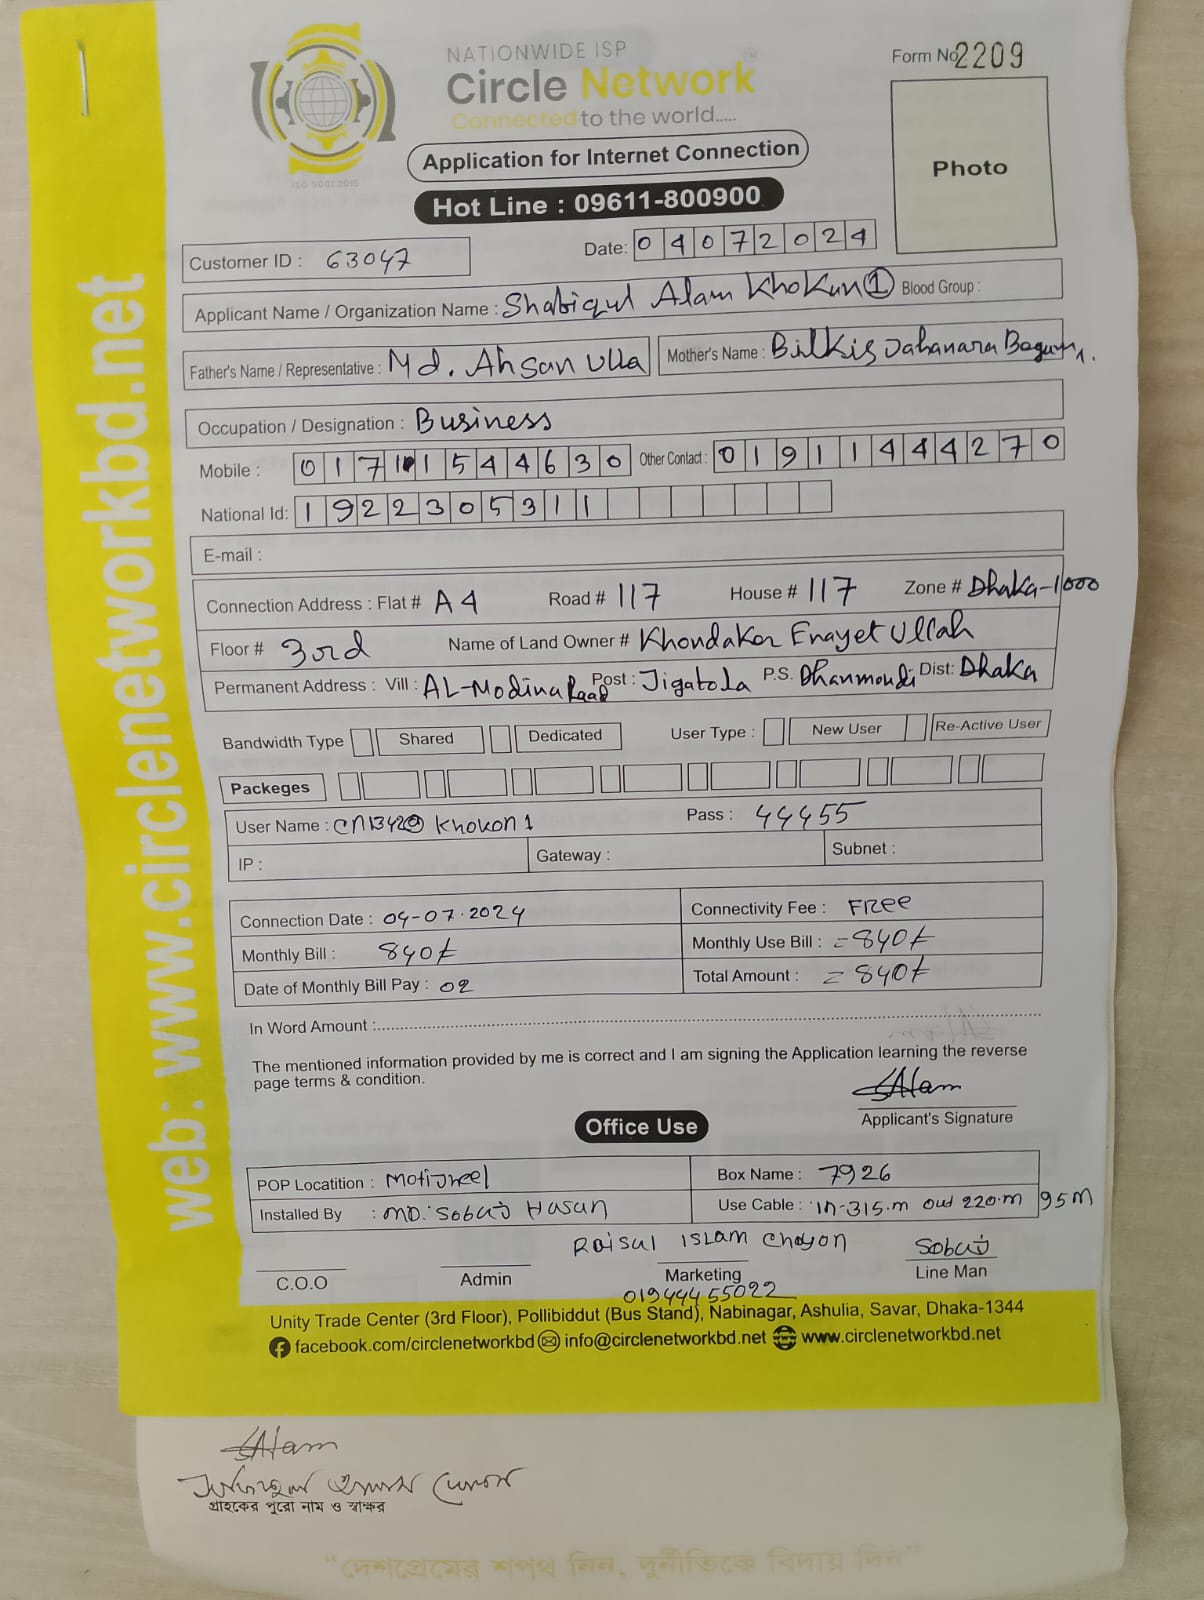 NATIONWIDE ISP
Circle Network
Connected to the world.....
ISO 9001:2015
Form No 2209
Photo
Application for Internet Connection
Hot Line : 09611-800900
Customer ID : 63047
Date: 04072024
Applicant Name / Organization Name : Shabiqul Alam Khokun ① Blood Group :
Father's Name / Representative : Md. Ahsan Ulla Mother's Name : Bilkis Jahanara Begum.
Occupation / Designation : Business
Mobile : 01711544630 Other Contact : 01911444270
National Id: 1922305311
E-mail :
Connection Address : Flat # A4 Road # 117 House # 117 Zone # Dhaka-1000
Floor # 3rd Name of Land Owner # Khondaker Enayet Ullah
Permanent Address : Vill : AL-Modina Road Post : Jigatola P.S. Dhanmondi Dist: Dhaka
Bandwidth Type Shared Dedicated User Type : New User Re-Active User
Packeges
User Name : Khokon1 Pass : 44455
IP : Gateway : Subnet :
Connection Date : 04-07-2024 Connectivity Fee : Free
Monthly Bill : 840/- Monthly Use Bill : = 840/-
Date of Monthly Bill Pay : 02 Total Amount : = 840/-
In Word Amount :
The mentioned information provided by me is correct and I am signing the Application learning the reverse
page terms & condition.
Alam
Applicant's Signature
Office Use
POP Locatition : Motijheel Box Name : 7926
Installed By : MD. Sobuj Hasan Use Cable : in-315.m out 220.m 95M
Raisul Islam Choyon Sobuj
C.O.O Admin Marketing Line Man
01944455022
Unity Trade Center (3rd Floor), Pollibiddut (Bus Stand), Nabinagar, Ashulia, Savar, Dhaka-1344
facebook.com/circlenetworkbd info@circlenetworkbd.net www.circlenetworkbd.net
web: www.circlenetworkbd.net
Alam
গ্রাহকের পুরো নাম ও স্বাক্ষর
"দেশপ্রেমের শপথ নিন, দুর্নীতিকে বিদায় দিন"